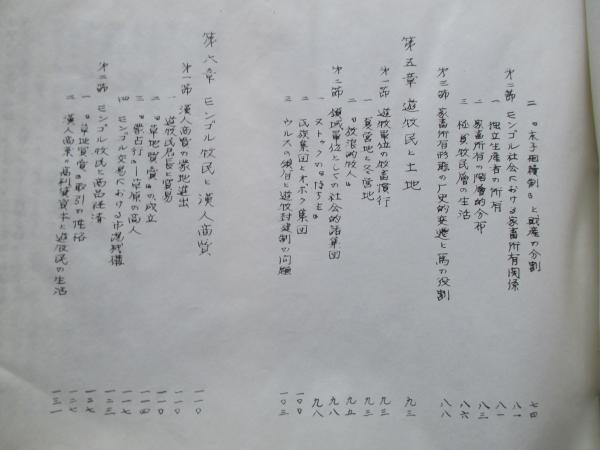 二 『末子相続制』と財産の分割 七四
第二節 モンゴル社会における家畜所有関係 八一
一 独立生産者の所有 八一
二 家畜所有の階層的分布 八三
三 極貧牧民層の生活 八六
第三節 家畜所有形態の歴史的変遷と馬の役割 八八
第五章 遊牧民と土地 九三
第一節 遊牧単位の牧畜慣行 九三
一 夏営地と冬営地 九三
二 『放浪的牧人』 九五
第二節 領域単位としての社会的諸集団 九八
一 ヌトゥクの『持ち主』 九八
二 氏族集団とオボク集団 一〇〇
三 ウルスの領有と遊牧封建制の問題 一〇三
第六章 モンゴル牧民と漢人商賈 一一〇
第一節 漢人商賈の蒙地進出 一一〇
一 遊牧民君長と貿易 一一〇
二 『草地買賣』の成立 一一〇
三 『蒙古行』―草原の商人 一一四
四 モンゴル交易における市場 一一七
第二節 モンゴル牧民と商品経済 一二三
一 『草地買賣』取引の性格 一二七
二 漢人商業・高利貸資本と遊牧民の生活 一三一